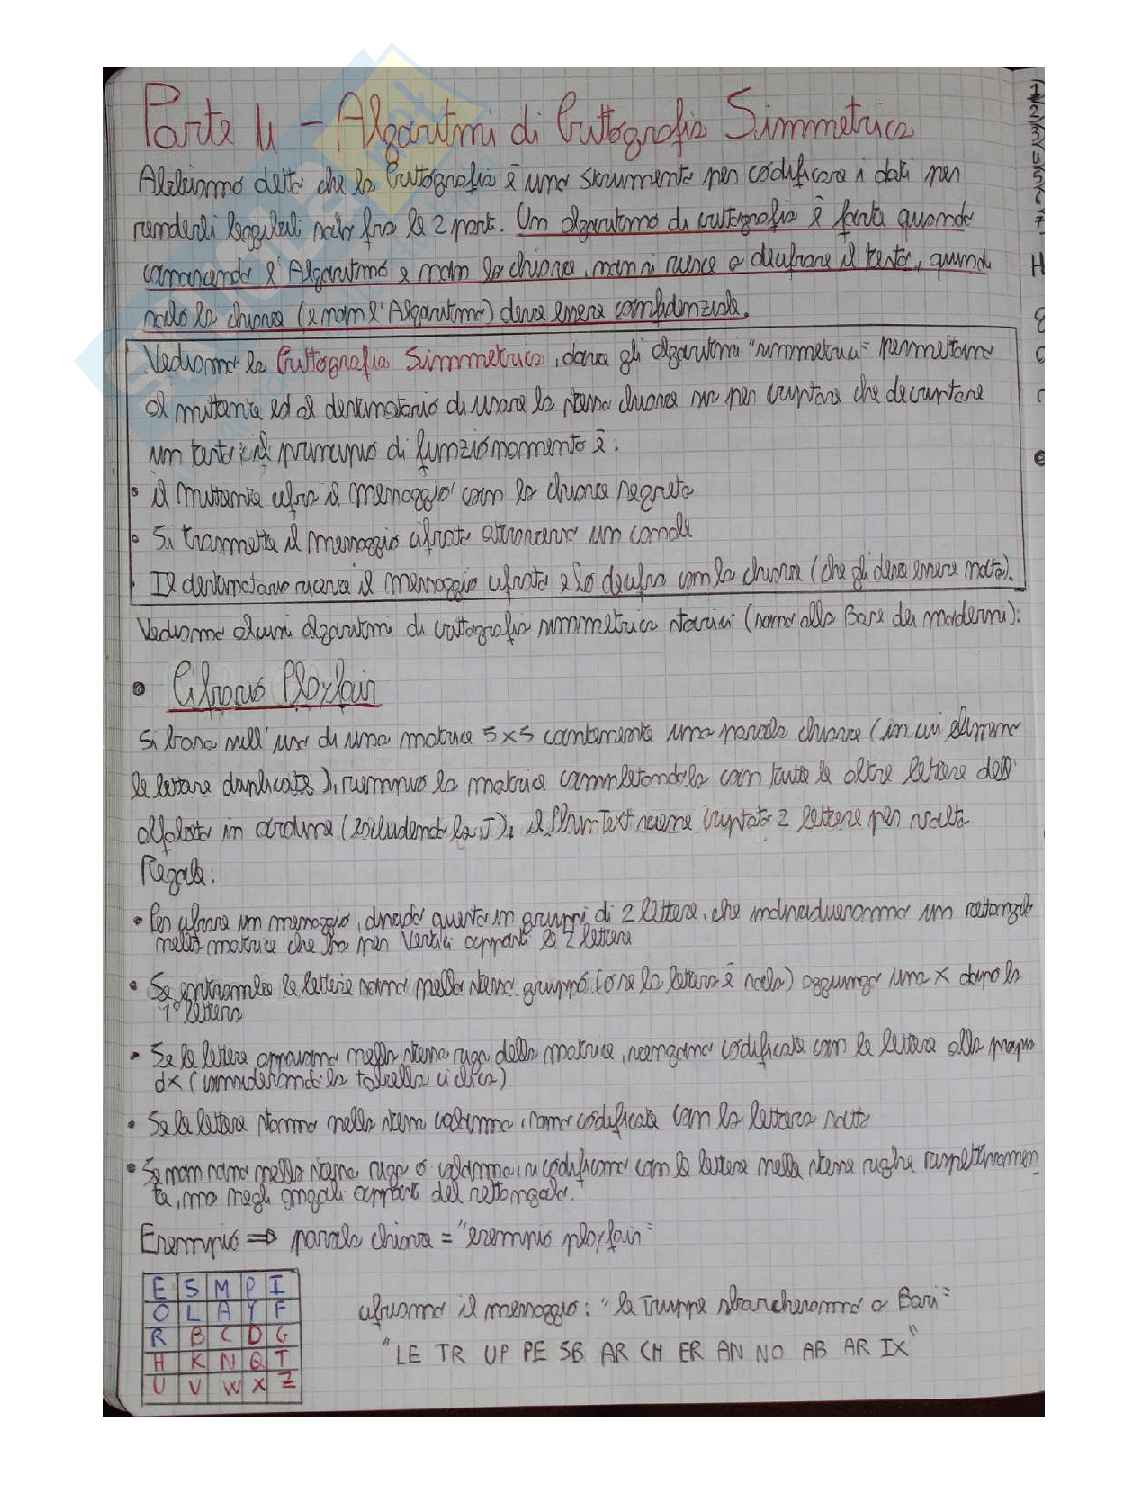 Parte 4 - Algoritmi di Crittografia Simmetrica
Abbiamo detto che la Crittografia è uno strumento per codificare i dati per
renderli leggibili solo fra le 2 parti. Un algoritmo di crittografia è forte quando
conoscendo l'Algoritmo e non la chiave, non si riesce a decifrare il testo, quindi
solo la chiave (e non l'Algoritmo) deve essere confidenziale.
Vediamo la Crittografia Simmetrica, dove gli algoritmi "simmetrici" permettono
al mittente ed al destinatario di usare la stessa chiave sia per criptare che decriptare
un testo: il principio di funzionamento è:
• il mittente cifra il messaggio con la chiave segreta
• Si trasmette il messaggio cifrato attraverso un canale
• Il destinatario riceve il messaggio cifrato e lo decifra con la chiave (che gli deve essere nota).
Vediamo alcuni algoritmi di crittografia simmetrica storici (sono alla Base dei moderni):
• Cifrario Playfair
Si basa sull'uso di una matrice 5x5 contenente una parola chiave (in cui elimino
le lettere duplicate), riempio la matrice completandola con tutte le altre lettere dell'
alfabeto in ordine (escludendo la J), il PlainText viene criptato 2 lettere per volta
Regole:
• Per cifrare un messaggio, divido questo in gruppi di 2 lettere, che individueranno un rettangolo
nella matrice che ha per Vertici opposti le 2 lettere
• Se entrambe le lettere sono nello stesso gruppo (o se la lettera è sola) aggiungo una X dopo la
1° lettera
• Se le lettere appaiono nella stessa riga della matrice, vengono codificate con le lettere alla propria
dx (considerando la tabella ciclica)
• Se le lettere stanno nella stessa colonna, sono codificate con la lettera sotto
• Se non sono nella stessa riga o colonna, si codificano con le lettere nelle stesse righe rispettivamen
te, ma negli angoli opposti del rettangolo.
Esempio ⇒ parola chiave = "esempio playfair"
E S M P I
O L A Y F
R B C D G
H K N Q T
U V W X Z
cifriamo il messaggio: "le Truppe sbarcheranno a Bari"
"LE TR UP PE SB AR CH ER AN NO AB AR IX"